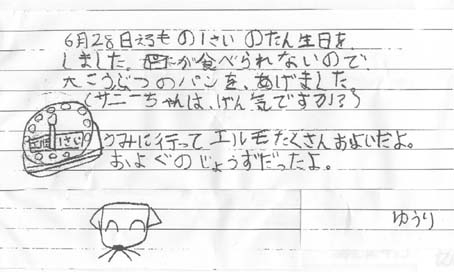 6月28日えるもの1さいのたん生日を、
しました。が食べられないので、
大こうぶつのパンを、あげました。
(サニーちゃんは、げん気ですか!?)
1さい
うみに行ってエル毛たくさんおよいだよ。
およぐのじょうずだったよ。
ゆうり